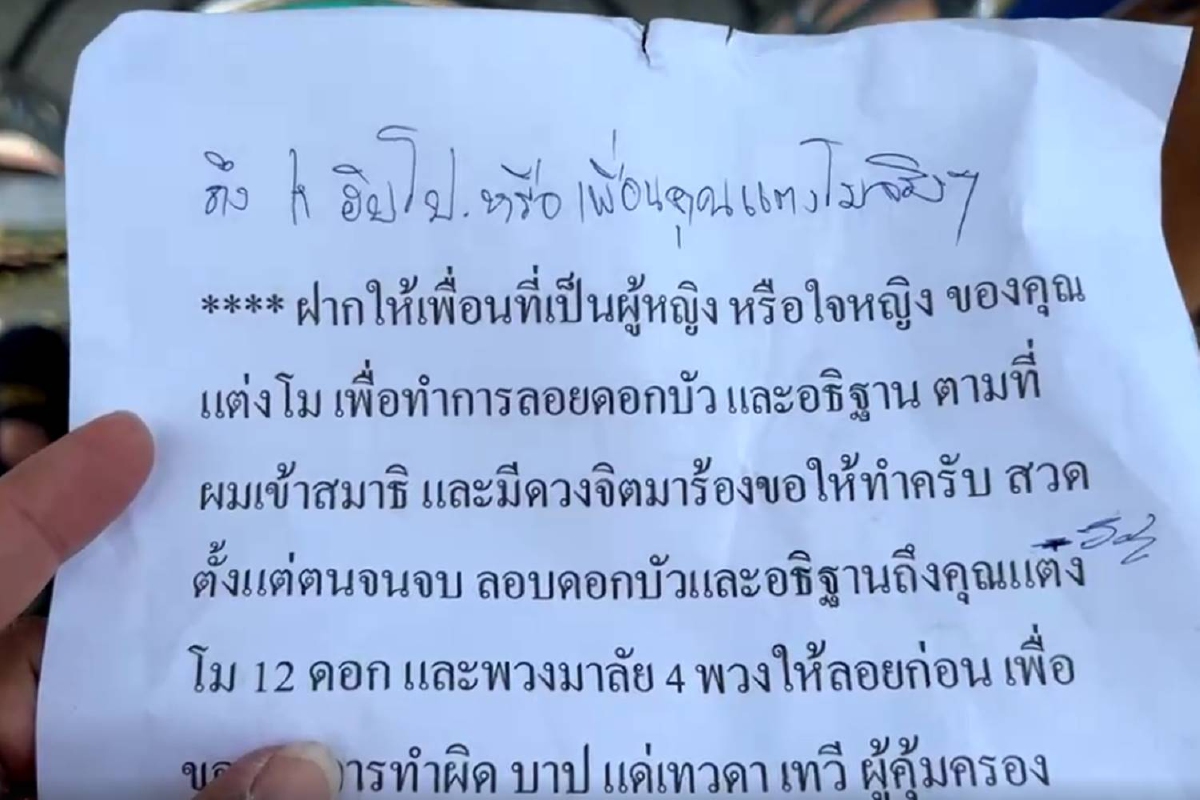 ถึง ฮิปโป. หรือ เพื่อนคุณแตงโมจริงๆ
**** ฝากให้เพื่อนที่เป็นผู้หญิง หรือใจหญิง ของคุณ
แต่งโม เพื่อทำการลอยดอกบัว และอธิฐาน ตามที่
ผมเข้าสมาธิ และมีดวงจิตมาร้องขอให้ทำครับ สวด
ตั้งแต่ตนจนจบ ลอบดอกบัวและอธิฐานถึงคุณแต่ง
โม 12 ดอก และพวงมาลัย 4 พวงให้ลอยก่อน เพื่อ
ารทำผิด บาป แด่เทวดา เทวี ผู้คุ้มครอง